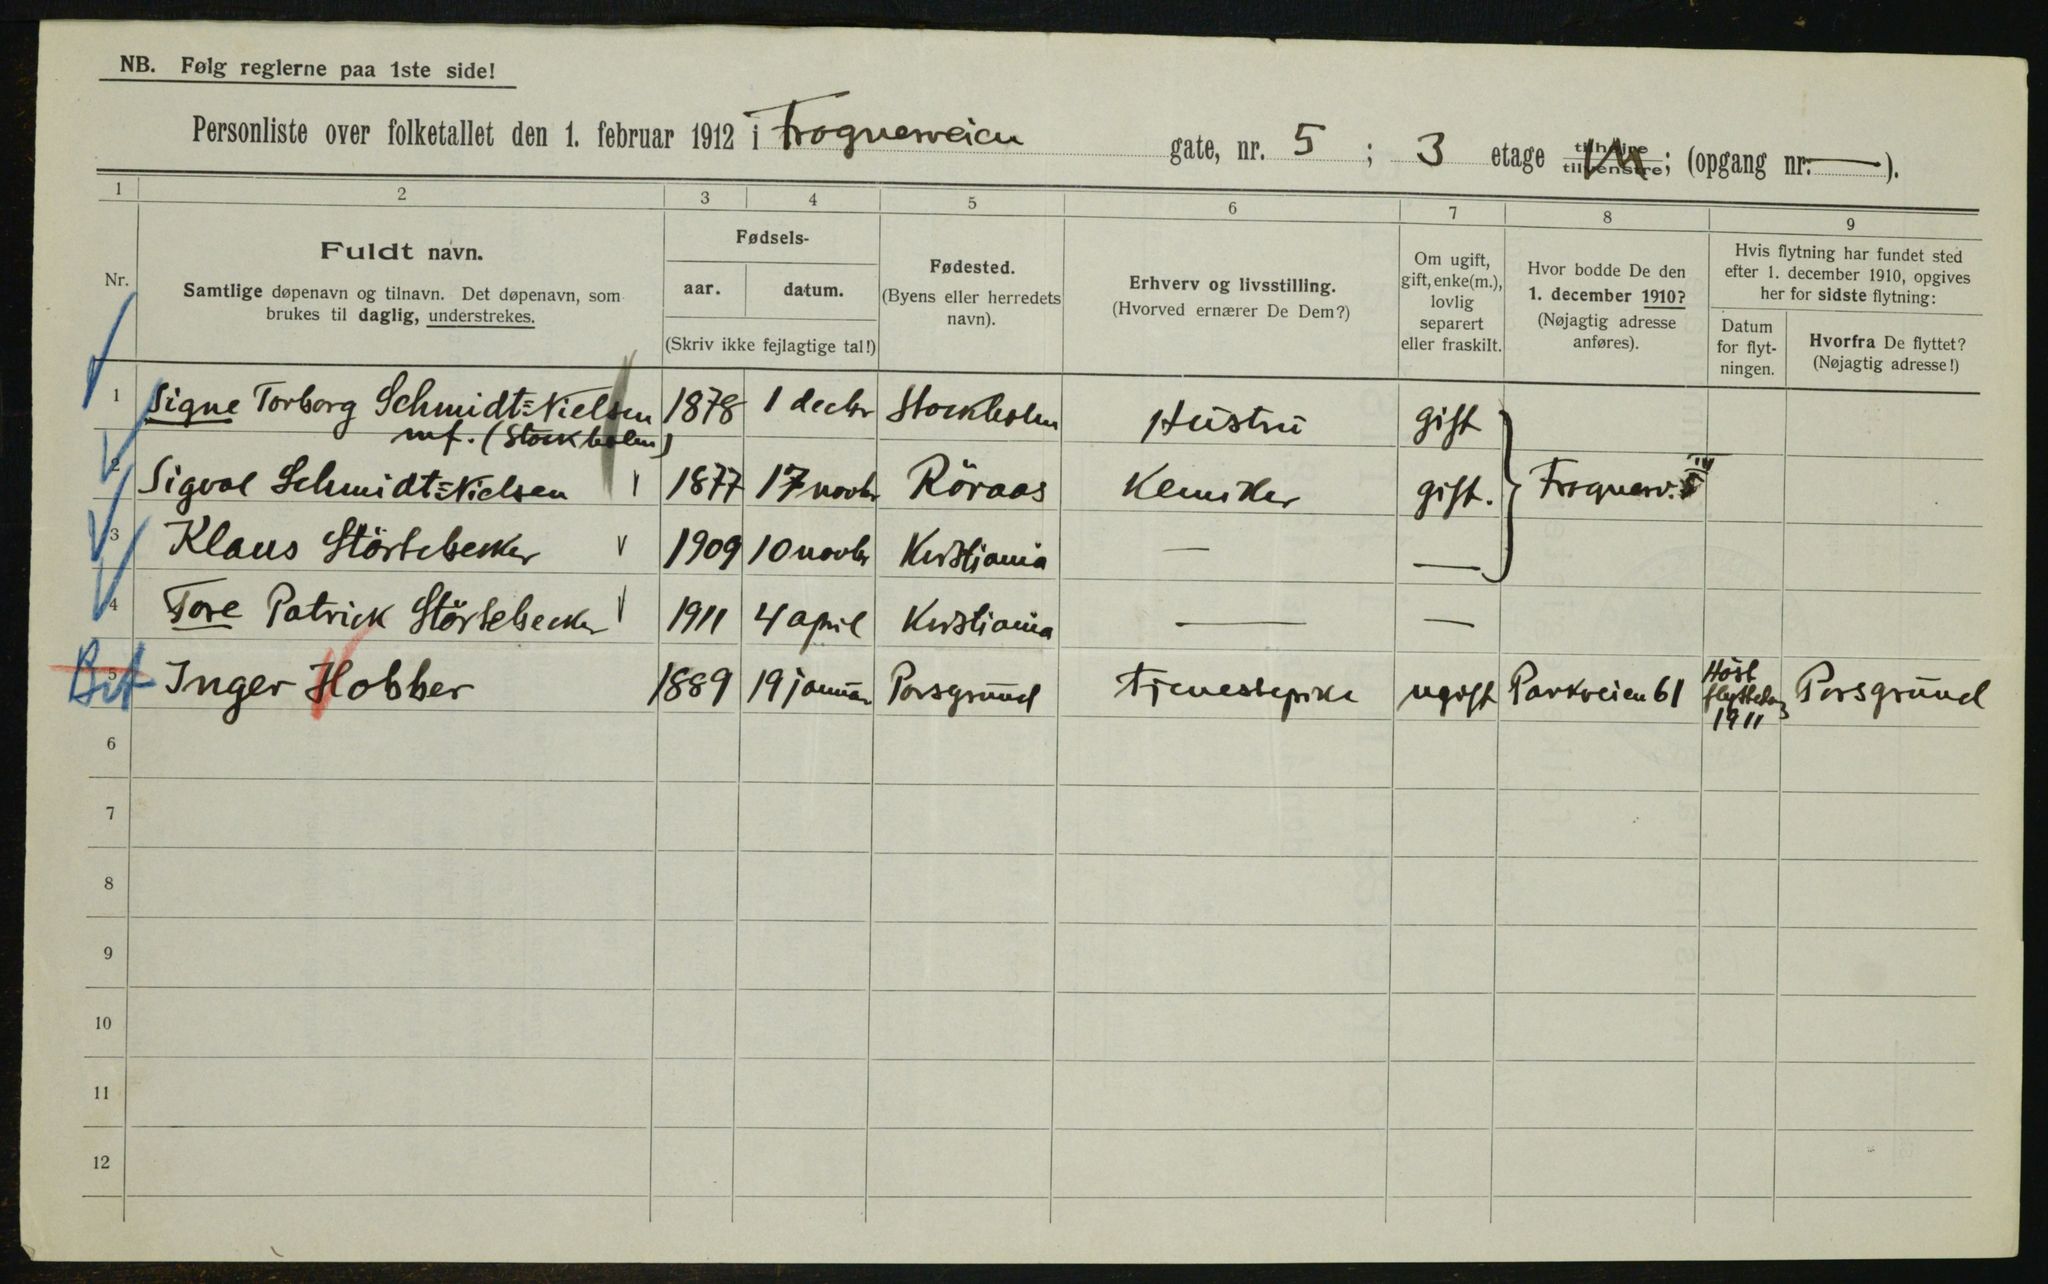 NB. Følg reglerne paa 1ste side!
Personliste over folketallet den 1. februar 1912 i Frognerveien gate, nr. 5 ; 3 etage tilhøire tilvenstre ; (opgang nr. — ).
1 2 3 4 5 6 7 8 9
Nr.
Fuldt navn.
Samtlige døpenavn og tilnavn. Det døpenavn, som
brukes til daglig, understrekes.
Fødsels-
aar. datum.
(Skriv ikke fejlagtige tal!)
Fødested.
(Byens eller herredets
navn).
Erhverv og livsstilling.
(Hvorved ernærer De Dem?)
Om ugift,
gift, enke(m.),
lovlig
separert
eller fraskilt.
Hvor bodde De den
1. december 1910?
(Nøjagtig adresse
anføres).
Hvis flytning har fundet sted
efter 1. december 1910, opgives
her for sidste flytning:
Datum
for flyt-
ningen.
Hvorfra De flyttet?
(Nøjagtig adresse!)
1 Signe Torborg Schmidt=Nielsen 1878 1 decbr Stockholm Hustru gift
(Stockholm)
2 Sigval Schmidt=Nielsen 1877 17 novbr Röraas Kemiker gift. Frognerv. 5 IV
3 Klaus Störtebecker 1909 10 novbr Kristiania — —
4 Tore Patrick Störtebecker 1911 4 april Kristiania — —
5 Inger Hobber 1889 19 januar Porsgrund Tjenestepike ugift Parkveien 61 Höst flyttedag 1911 Porsgrund
6
7
8
9
10
11
12